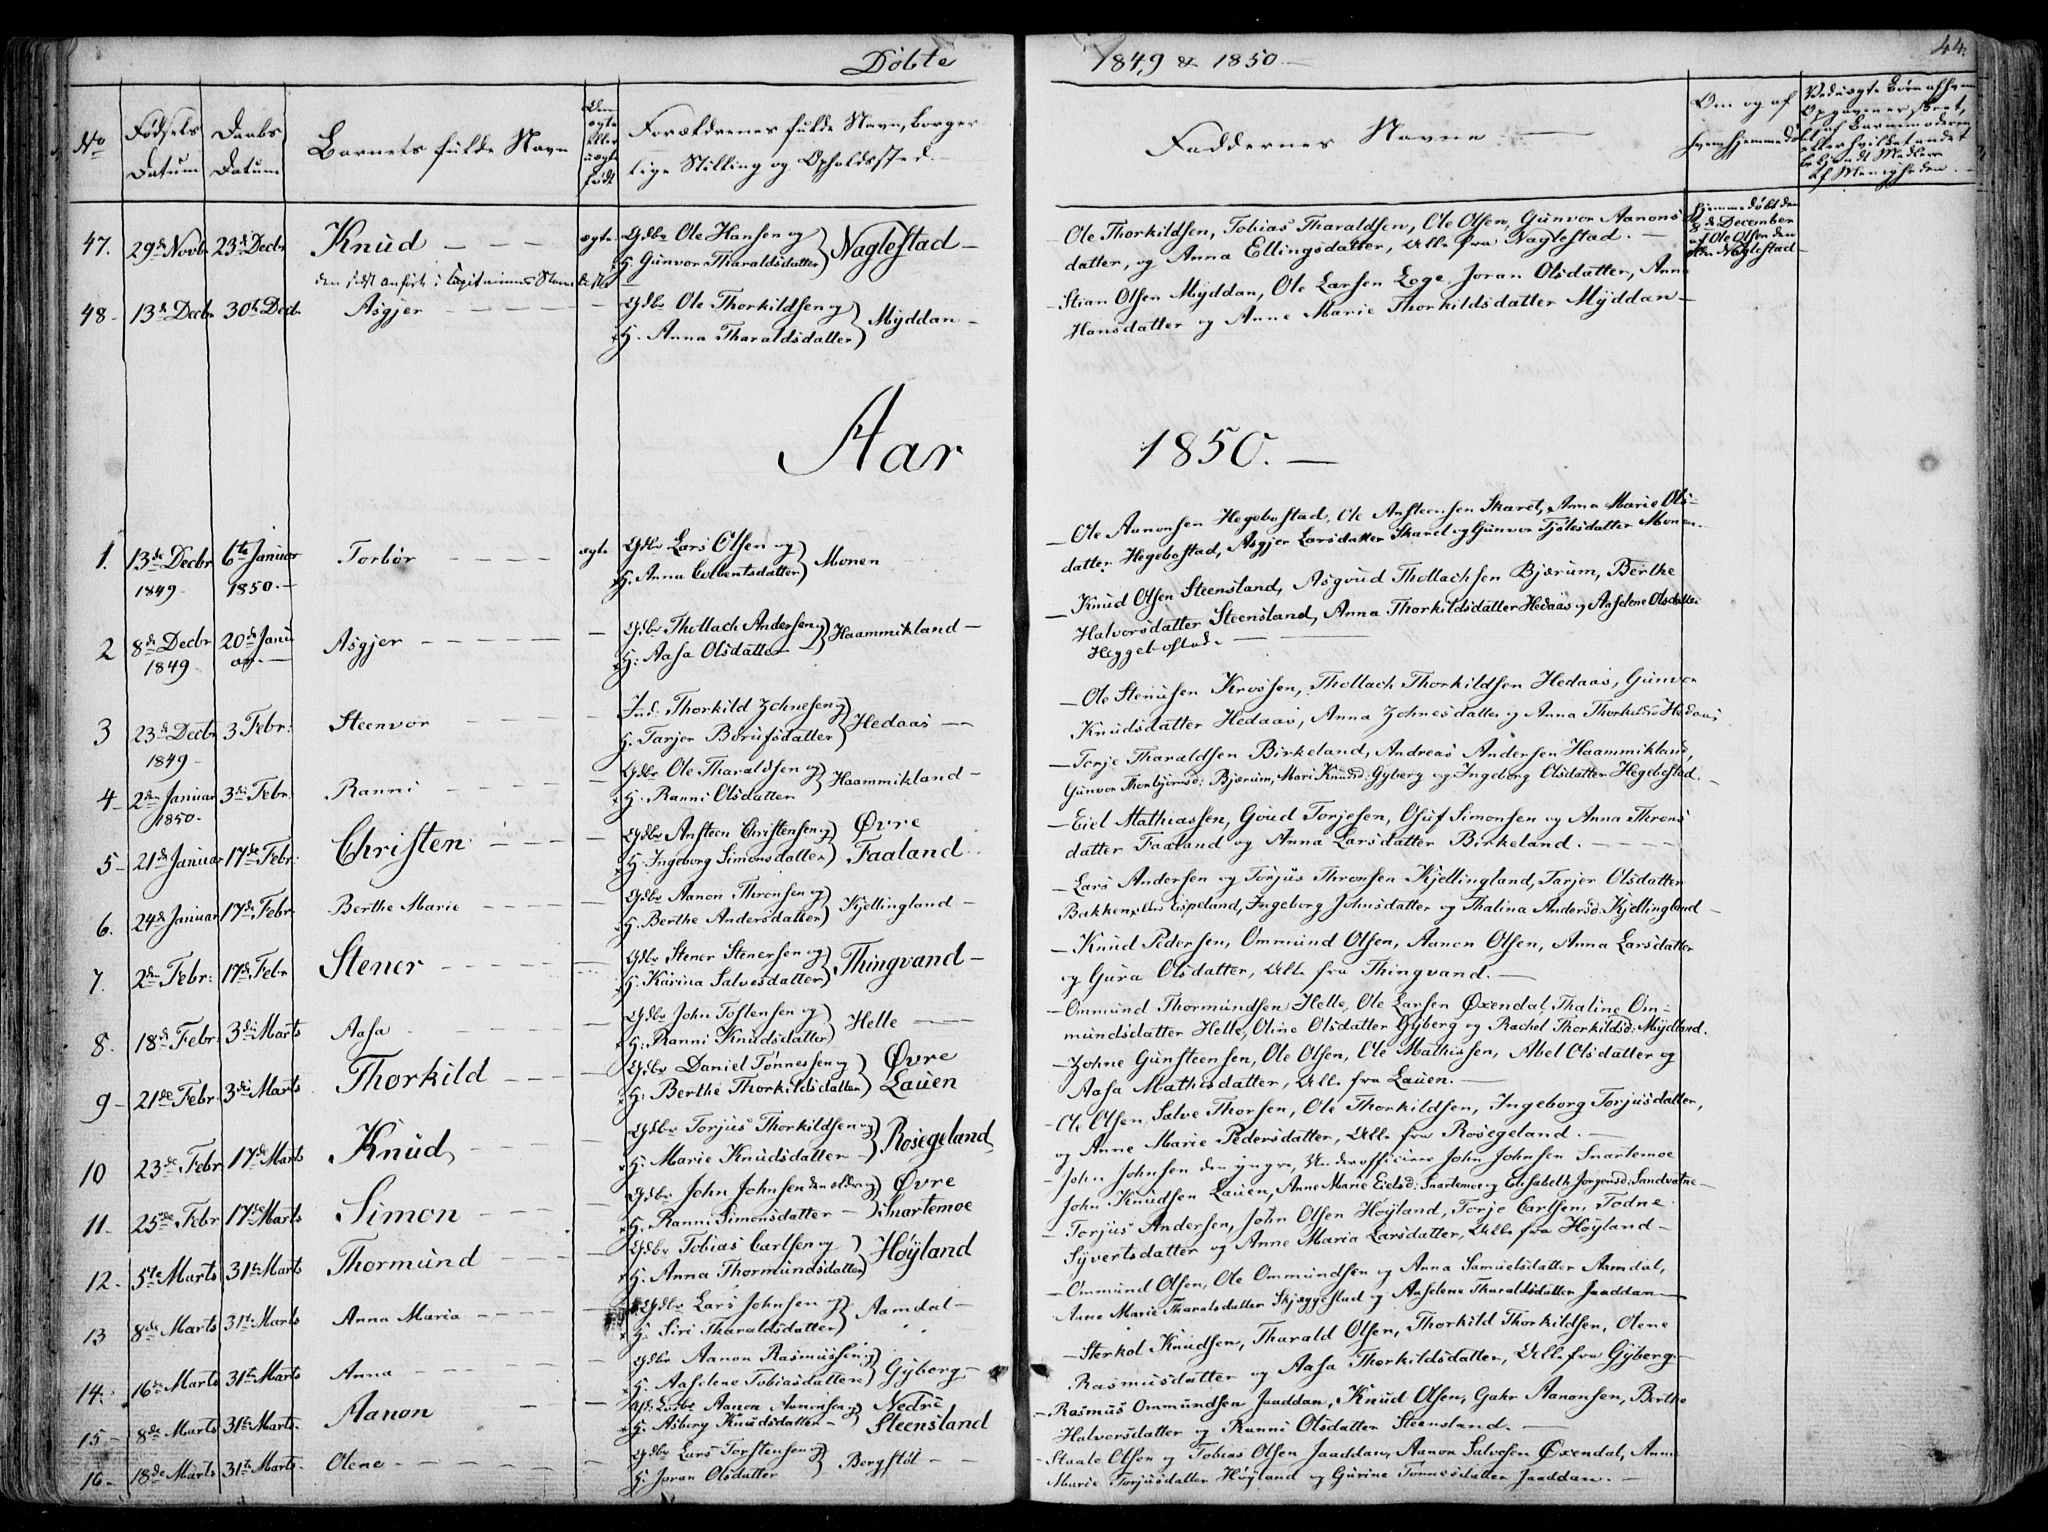 Døbte
1849 & 1850
44.
No
Fødsels
Datum
Daabs
Datum
Barnets fulde Navn
Om
ægte
eller
uægte
født
Forældrenes fulde Navn, borger
lige Stilling og Opholdssted.
Faddernes Navne
Om og af
hvem hjemmedøbt
47. 29de Novbr 23de Decbr Knud ægte Gdbr Ole Hansen og
H. Gunvor Tharaldsdatter Naglestad
Ole Thorkildsen, Tobias Tharaldsen, Ole Olsen, Gunvor Aanons
datter, og Anna Ellingsdatter, Alle fra Naglestad.
Hjemmedøbt den
8de December
af Ole Olsen den
Naglestad
48 13de Decbr 30te Decbr Asgjer Gdbr Ole Thorkildsen og
H. Anna Tharaldsdatter Myddan
Stian Olsen Myddan, Ole Larsen Lege, Joran Olsdatter, Anne
Hansdatter og Anne Marie Thorkildsdatter Myddan
Aar 1850.
1. 13de Decbr 6te Januar Torbør ægte Gdbr Lars Olsen og
1849 1850. H. Anna Monen
Ole Aanonsen Hegebostad, Ole Ansteensen Skaret, Anna Marie Ols
datter Hegebostad, Asgjer Larsdatter Skaret og Gunvor Monen.
2 8de Decbr 20de Janu Asgjer Gdbr Thollach Andersen og
1849 ar. H. Aasa Olsdatter Haammikland
Knud Olsen Steensland, Asgoud Thollachsen Bjærum, Berthe
Halvorsdatter Steensland, Anna Thorkildsdatter Hedaas og Aaselene Olsdatter
Heggebostad.
3 23de Decbr 3 Febr: Steenvor Ind. Thorkild Zohnesen og
1849 H. Tarjer Borufsdatter Hedaas
Ole Stenersen Krossen, Thollach Thorkildsen Hedaas, Gunvor
Knudsdatter Hedaas, Anna Zohnesdatter og Anna Hedaas
4 2den Januar 3die Febr: Ranni Gdbr Ole Tharaldsen og
1850. H. Ranni Olsdatter Haammikland
Torje Tharaldsen Birkeland, Andreas Andersen Haammikland,
Gunvor Bjærum, Mari Knudsd: Gyberg og Ingeborg Olsdatter Hegebostad.
5 21de Januar 17de Febr: Christen Gdbr Ansteen Christensen og
H. Ingeborg Simonsdatter Øvre Faaland
Eiel Mathiassen, Goud Torjesen, Osuf Simonsen og Anna Throns
datter Faaland og Anna Larsdatter Birkeland.
6. 24de Januar 17de Febr. Berthe Marie Gdbr Aanon Thronsen og
H. Berthe Andersdatter Kjellingland
Lars Andersen og Torjus Thronsen Kjellingland, Tarjer Olsdatter
Bakken, Espeland, Ingeborg Johnsdatter og Thalina Andersd: Kjellingland
7. 2den Febr: 17de Febr Stener Gdbr Stener Stenersen og
H. Karina Salvesdatter Thingvand
Knud Pedersen, Ommund Olsen, Aanon Olsen, Anna Larsdatter
og Gura Olsdatter, Alle fra Thingvand.
8. 18de Febr: 3die Marts Aasa Gdbr John Tostensen og
H. Ranni Knudsdatter Helle
Ommund Thormundsen Helle, Ole Larsen Øxendal, Thaline Om
mundsdatter Helle, Oline Olsdatter Gyberg og Rachel Thorkildsd: Mydland.
9 21de Febr: 3die Marts Thorkild Gdbr Daniel Tønnessen og
H. Berthe Thorkildsdatter Øvre Lauen
Zohne Gunsteensen, Ole Olsen, Ole Mathissen, Abel Olsdatter og
Aasa Mathisdatter, Alle fra Lauen.
10 23de Febr 17de Marts Knud Gdbr Torjus Thorkildsen og
H. Marie Knudsdatter Rosegeland
Ole Olsen, Salve Thorsen, Ole Thorkildsen, Ingeborg Torjusdatter,
og Anne Marie Pedersdatter, Alle fra Rosegeland.
11. 25de Febr 17de Marts Simon Gdbr John Johnsen den eldre og
H. Ranni Simonsdatter Øvre Snartemoe
John Johnsen den yngre, Underofficier John Johnsen Snartemoe
John Knudsen Lauen, Anne Marie Eielsd: Snartemoe og Elisabeth Jørgensd: Sandvatne
12. 5te Marts 31te Marts Thormund Gdbr Tobias Carlsen og
H. Anna Thormundsdatter Høyland
Torjus Andersen, John Olsen Høyland, Torje Carlsen, Todne
Syvertsdatter og Anne Maria Larsdatter, Alle fra Høyland
13 8de Marts 31te Marts Anna Maria Gdbr Lars Johnsen og
H. Siri Tharaldsdatter Aamdal
Ommund Olsen, Ole Ommundsen og Anna Samuelsdatter Aamdal,
Anne Marie Tharalsdatter Skjæggestad og Aaselene Tharaldsdatter Jaaddan
14. 16de Marts 31te Marts Anna Gdbr Aanon Rasmussen og
H. Aaselene Tobiasdatter Gyberg
Sterkol Knudsen, Tharald Olsen, Thorkild Thorkildsen, Olene
Rasmusdatter og Aasa Thorkildsdatter, Alle fra Gyberg
15 8de Marts 31te Marts. Aanon Aanon Aanonsen og
H. Asborg Knudsdatter Nedre Steensland
Rasmus Ommundsen Jaaddan, Knud Olsen, Gahr Aanonsen, Berthe
Halvorsdatter og Ranni Olsdatter Steensland.
16 18de Marts 31te Marts. Olene Gdbr Lars Torstensen og
H. Joran Olsdatter Bergstøl
Staale Olsen og Tobias Olsen Jaaddan, Aanon Salvesen Øxendal, Anne
Marie Torjusdatter Høyland og Gurine Tønnesdatter Jaaddan.